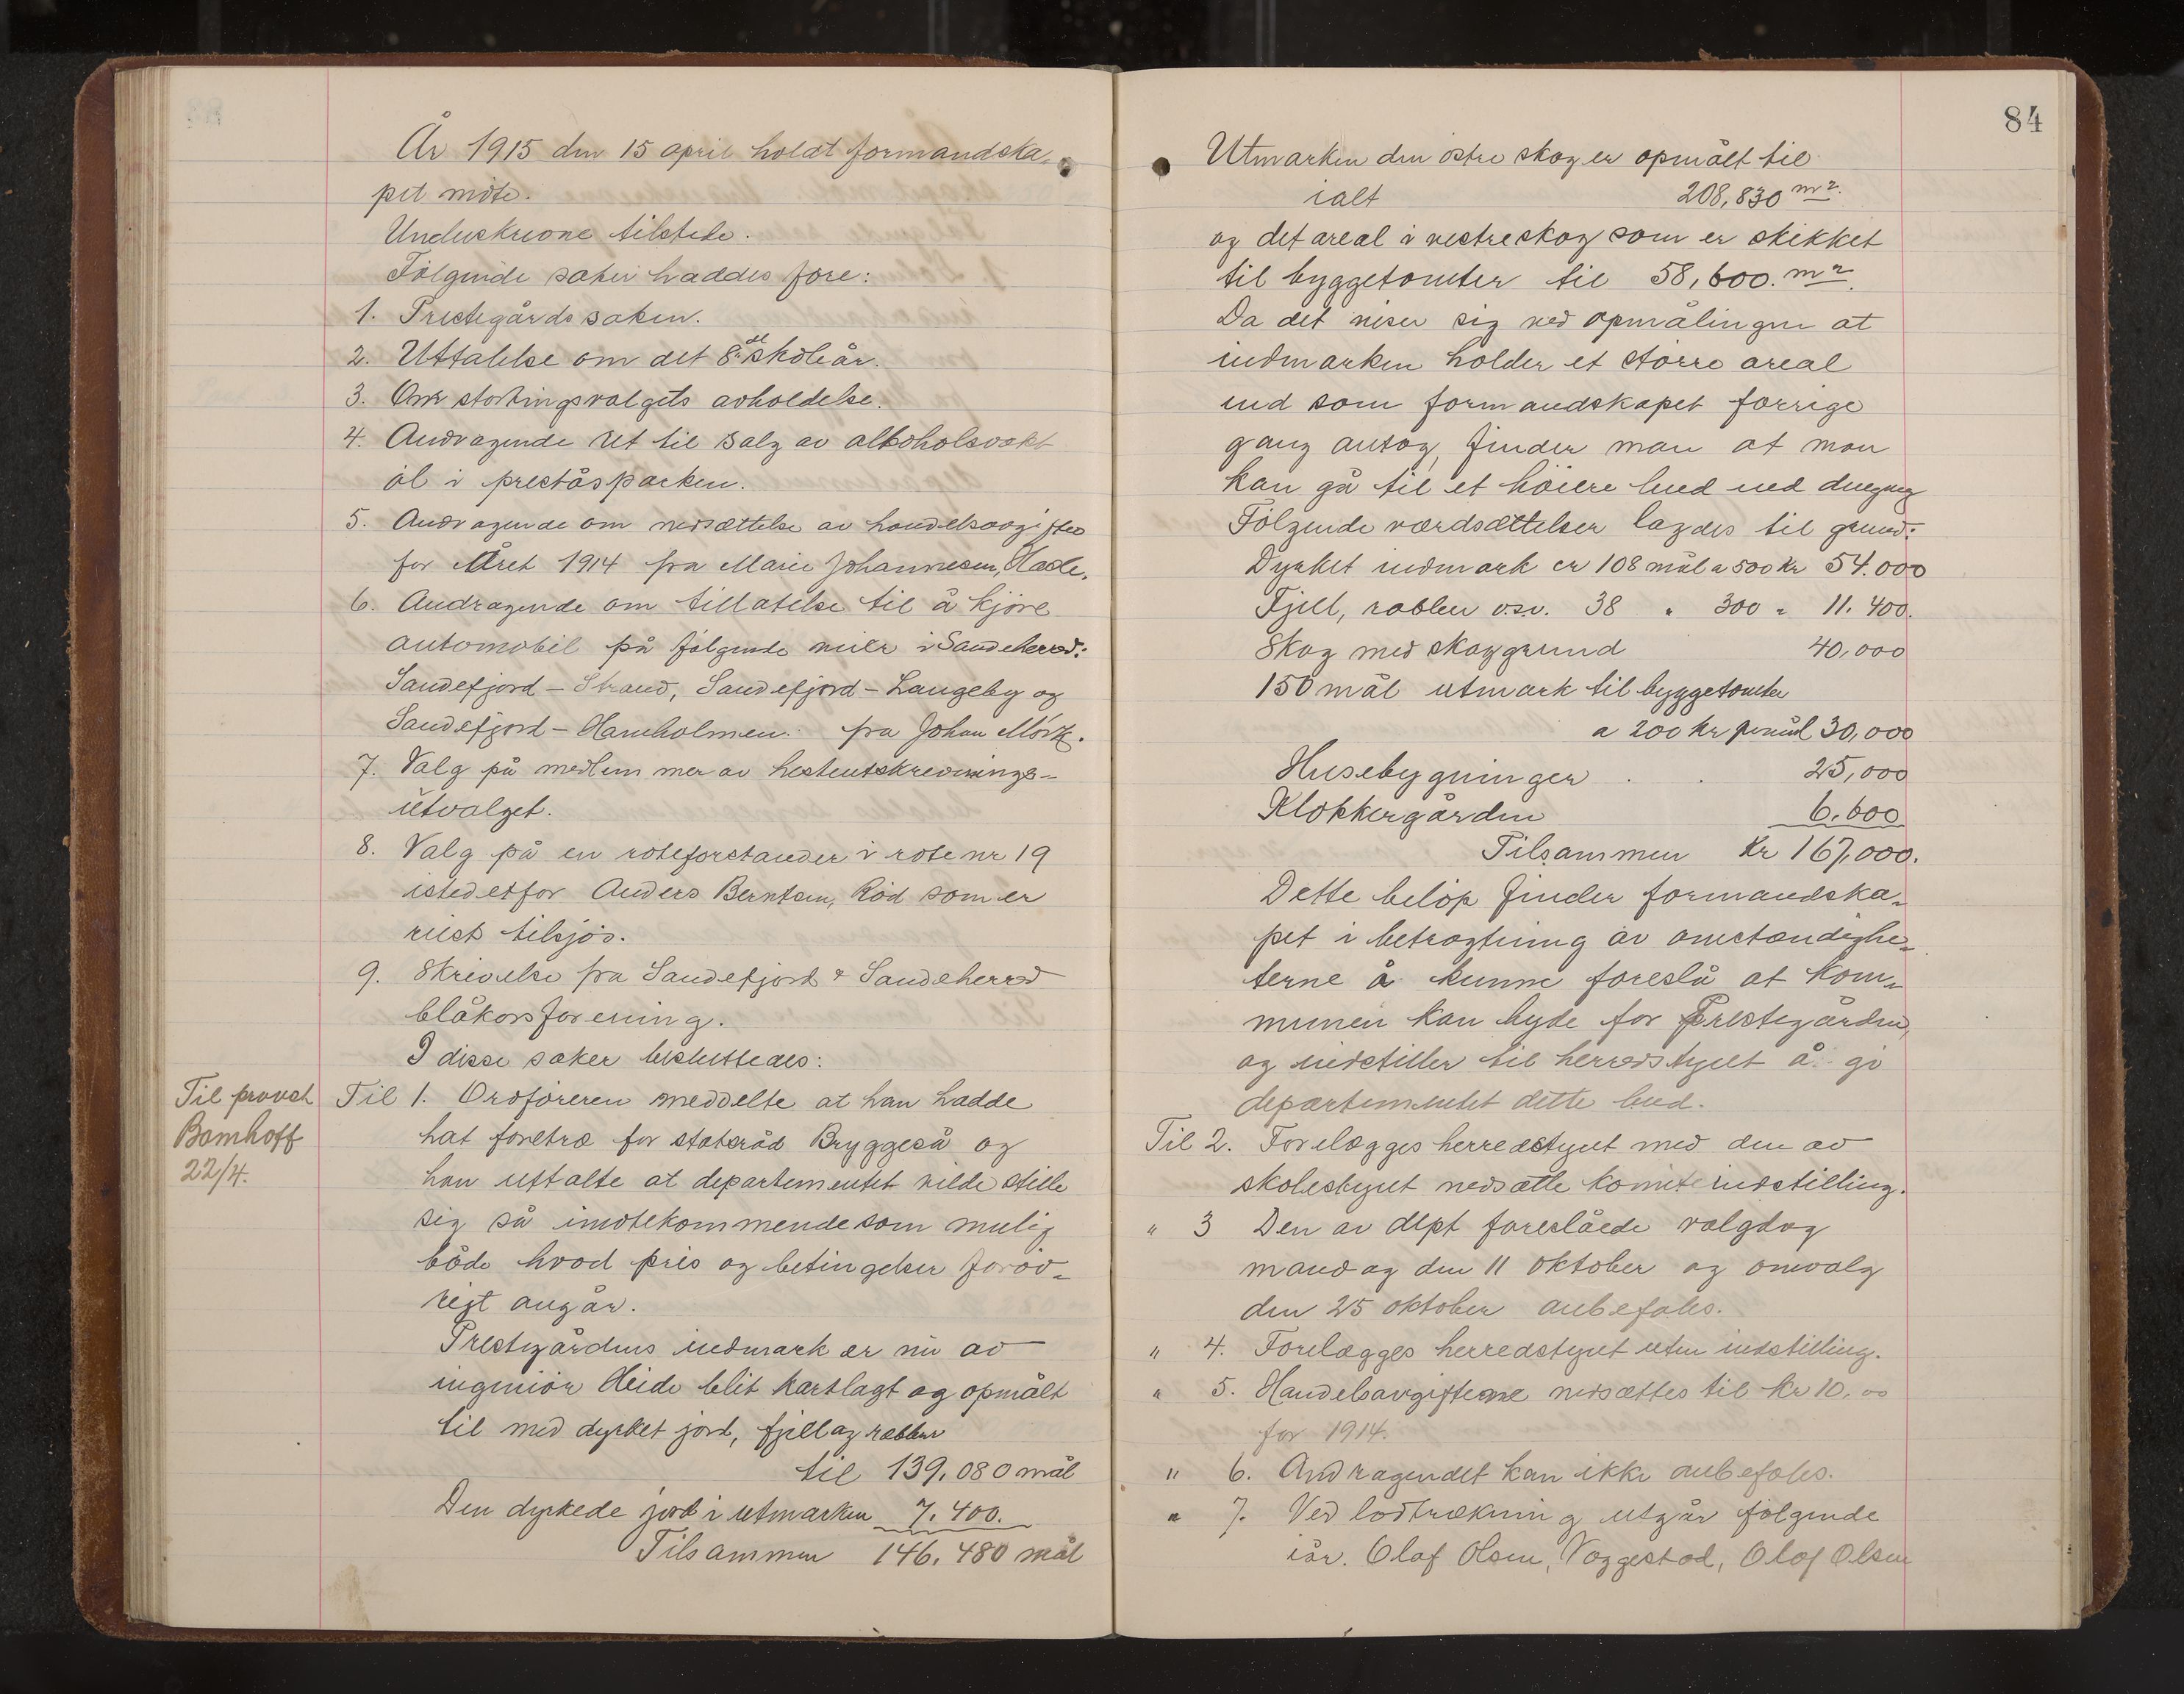 År 1915 den 15 april holdt formandska-
pet møte.
Underskrevne tilstede.
Følgende saker haddes fore:
1. Prestegårdssaken.
2. Uttalelse om det 8de skoleår.
3. Om stortingsvalgets avholdelse.
4. Andragende ret til salg av alkoholsvakt
øl i preståsparken.
5. Andragende om nedsættelse av handelsavgiften
for Året 1914 fra Marie Johannesen, Hasle.
6. Andragende om tillatelse til å kjøre
automobil på følgende veier i Sandeherred:
Sandefjord - Strand, Sandefjord - Langeby og
Sandefjord - Hamholmen. fra Johan Mørk.
7. Valg på medlemmer av hesteutskrivnings-
utvalget.
8. Valg på en roteforstander i rote nr 19
istedetfor Anders Berntsen, Rød som er
reist tilsjøs.
9. Skrivelse fra Sandefjord & Sandeherred
blåkorsforening.
I disse saker besluttedes:
Til provst
Bomhoff
22/4.
Til 1. Ordføreren meddelte at han hadde
hat foretræ for statsråd Bryggeså og
han uttalte at departementet vilde stille
sig så imøtekommende som mulig
både hvad pris og betingelser forøv-
rigt angår.
Prestegårdens indmark er nu av
ingeniør Heide blit kartlagt og opmålt
til med dyrket jord, fjell og rabber
til 139,080 mål
Den dyrkede jord i utmarken 7.400.
Tilsammen 146,480 mål
84
Utmarken den østre skog er opmålt til
ialt 208,830 m2.
og det areal i vestreskog som er skikket
til byggetomter til 58,600. m2.
Da det viser sig ved opmålingen at
indmarken holder et større areal
end som formandskapet forrige
gang antog, finder man at man
kan gå til et høiere bud end dengang
Følgende værdsættelser lagdes til grund:
Dyrket indmark er 108 mål a 500 kr 54.000
Fjell, rabber o.s.v. 38 " 300 " 11.400.
Skog med skoggrund 40,000
150 mål utmark til byggetomter
a 200 kr pr mål 30,000
Husebygninger . . 25,000
Klokkergården 6.600
Tilsammen Kr 167,000.
Dette beløp finder formandska-
pet i betragtning av omstændighe-
terne å kunne foreslå at kom-
munen kan byde for Prestegården,
og indstiller til herredstyret å gi
departementet dette bud.
Til 2. Forelægges herredstyret med den av
skolestyret nedsatte komite indstilling.
" 3 Den av dept foreslåede valgdag
mandag den 11 oktober og omvalg
den 25 oktober anbefales.
" 4. Forelægges herredstyret uten indstilling.
" 5. Handelsavgiftene nedsættes til kr 10.00
for 1914.
" 6. Andragendet kan ikke anbefales.
" 7. Ved lodtrækning utgår følgende
iår. Olaf Olsen, Voggestad, Olaf Olsen